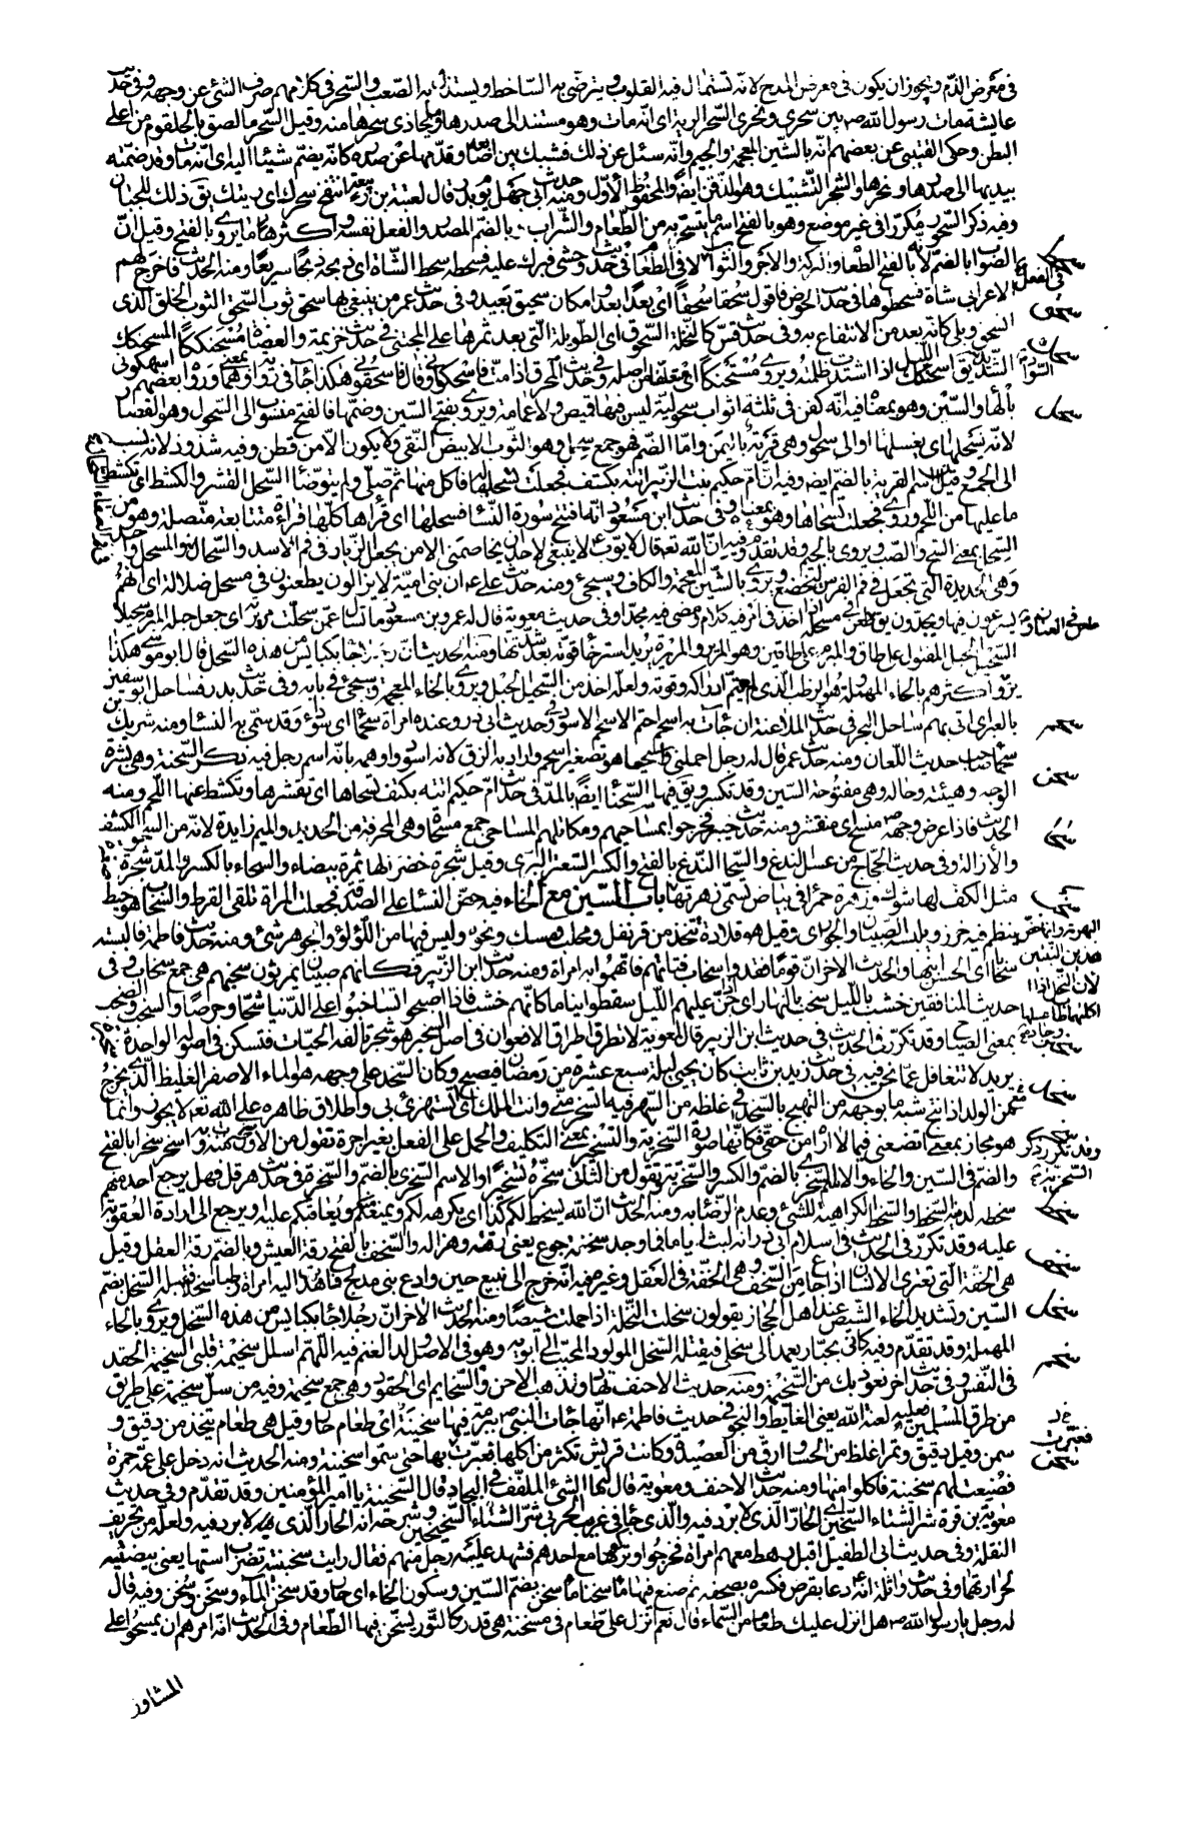 فى معرض الذم ويجوز ان يكون فى معرض المدح لانه تستمال فيه القلوب ويترضى به الساخط ويستذل به الصعب والسحر فى كلامهم صرف الشئ عن وجهه وفى حديث
عايشة مات رسول الله ص بين سحرى ونحرى السحر الرية اى انه مات وهو مستند الى صدرها وما يحاذى سحرها منه وقيل السحر ما لصق بالحلقوم من اعلى
البطن وحكى القتيبى عن بعضهم انه بالشين المعجمة والجيم وانه سئل عن ذلك فشبك بين اصابعه وقدمها عن صدره كانه يضم شيئا اليه اى انه مات وقد ضمته
بيديها الى صدرها ونحرها والشجر التشبيك وهو الذقن ايضا والمحفوظ الاول ومنه حديث ابى جهل يوم بدر قال لعتبة بن ربيعة انتفخ سحرك اى ريتك يق ذلك للجبان
وفيه ذكر السحور مكررا فى غير موضع وهو بالفتح اسم ما يتسحر به من الطعام والشراب وبالضم المصدر والفعل نفسه واكثر ما يروى بالفتح وقيل ان
الصواب بالضم لانه بالفتح الطعام والبركة والاجر والثواب لا فى الطعام فى حديث وحشى فبرك عليه فسحطه سحط الشاة اى ذبحه ذبحا سريعا ومنه الحديث فاخرج لهم
الاعرابى شاة فسحطوها فى حديث الحوض فاقول سحقا سحقا اى بعدا بعدا ومكان سحيق بعيد وفى حديث عمر من يبيعنى بها سحق ثوب السحق الثوب الخلق الذى
انسحق وبلى كانه بعد من الانتفاع به وفى حديث قس كالنخلة السحوق اى الطويلة التى بعد ثمرها على المجتنى فى حديث خزيمة والعضاه مستحنككا المسحنكك
الشديد السواد يق اسحنكك الليل اذا اشتدت ظلمته ويروى مستحنكا اى منقلعا من اصله وفى حديث المحرق اذا مت فاسحكونى او قال فاسحقونى هكذا جاء فى رواية وهما بمعنى ورواه بعضهم اسهكونى
بالهاء والسين وهو بمعناه فيه انه كفن فى ثلثة اثواب سحولية ليس فيها قميص ولا عمامة ويروى بفتح السين وضمها فالفتح منسوب الى السحول وهو القصار
لانه يسحلها اى يغسلها او الى سحول وهى قرية باليمن واما الضم فهو جمع سحل وهو الثوب الابيض النقى ولا يكون الا من قطن وفيه شذوذ لانه نسب
الى الجمع وقيل اسم القرية بالضم ايضا وفيه ان ام حكيم بنت الزبير اتته بكتف فجعلت تسحلها له فاكل منها ثم صلى ولم يتوضأ السحل القشر والكشط اى تكشط
ما عليها من اللحم وروى فجعلت تسحاها وهو بمعناه وفى حديث ابن مسعود انه افتتح سورة النساء فسحلها اى قرأها كلها قراءة متتابعة متصلة وهو من
السحل بمعنى السح والصب ويروى بالجيم وقد تقدم وفيه ان الله تعه قال لايوب ع لا ينبغى لاحد ان يخاصمنى الا من يجعل الزيار فى فم الاسد والسحال والمسحل واحد
وهى الحديدة التى تجعل فى فم الفرس ليخضع ويروى بالشين المعجمة والكاف وسيجئ ومنه حديث على ع ان بنى امية لا يزالون يطعنون فى مسحل ضلالة اى انهم
يسرعون فيها ويجدون يق طعن فى العنان
السحيل الحبل المفتول على طاق والمبرم على طاقين وهو المرير والمريرة يريد استرخاء قوته بعد شدتها ومنه الحديث ان رجلا جاء بكبايس من هذه السحل قال ابو موسى هكذا
يرويه اكثرهم بالحاء المهملة وهو الرطب الذى لم يتم ادراكه وقوته ولعله اخذ من السحيل الحبل ويروى بالخاء المعجمة وسيجئ فى بابه وفى حديث بدر فساحل ابو سفيان
بالعير اى اتى بهم ساحل البحر فى حديث الملاعنة ان جاءت به اسحم احتم الاسحم الاسود وفى حديث ابى ذر وعنده امراة سحماء اى سوداء وقد سمى بها النساء ومنه شريك
بن سحماء صاحب حديث اللعان ومنه حديث عمر قال له رجل احملنى وسحيما هو تصغير اسحم واراد به الزق لانه اسود واوهمه بانه اسم رجل فيه ذكر السحنة وهى بشرة
الوجه وهيئته وحاله وهى مفتوحة السين وقد تكسر ويق فيها السحناء ايضا بالمد فى حديث ام حكيم اتته بكتف تسحاها اى تقشرها وتكشط عنها اللحم ومنه
الحديث فاذا عرض وجهه ص منسح اى منقشر ومنه حديث خيبر فخرجوا بمساحيهم ومكاتلهم المساحى جمع مسحاة وهى المجرفة من الحديد والميم زايدة لانه من السحو الكشف
والازالة وفى حديث الحجاج من عسل الندغ والسحاء الندغ بالفتح والكسر السعتر البرى وقيل شجرة خضراء لها ثمرة بيضاء والسحاء بالكسر والمد شجرة
مثل الكف لها شوك وزهرة حمراء فى بياض تسمى زهرتها باب السين مع الخاء فيه حض النساء على الصدقة فجعلت المراة تلقى القرط والسخاب هو خيط
ينظم فيه خرز ويلبسه الصبيان والجوارى وقيل هو قلادة تتخذ من قرنفل ومحلب ومسك ونحوه وليس فيها من اللؤلؤ والجوهر شئ ومنه حديث فاطمة فالبسته
سخابا اى الحسن ابنها والحديث الاخر ان قوما فقدوا سخاب فتاتهم فاتهموا به امراة ومنه حديث ابن الزبير فكانهم صبيان يمرثون سخبهم هى جمع سخاب وفى
حديث المنافقين خشب بالليل سخب بالنهار اى اذا جن عليهم الليل سقطوا نياما كانهم خشب فاذا اصبحوا تساخبوا على الدنيا شحا وحرصا والسخب والصخب
بمعنى الصياح وقد تكرر فى الحديث فى حديث ابن الزبير قال لمعوية لا تطرق اطراق الافعوان فى اصل السخبر هو شجر تالفه الحيات فتسكن فى اصوله الواحدة
يريد لا تتغافل عما نحن فيه فى حديث زيد بن ثابت كان يحيى ليلة سبع عشرة من رمضان فيصبح وكان السخد على وجهه هو الماء الاصفر الغليظ الذى يخرج
مع الولد اذا نتج شبه ما بوجهه من التهيج بالسخد فى غلظه من السهر فيه اتسخر منى وانت الملك اى اتستهزئ بى واطلاق ظاهره على الله تعه لا يجوز وانما
هو مجاز بمعنى اتضعنى فيما لا اراه من حقى فكانها صورة السخرية والتسخير بمعنى التكليف والحمل على الفعل بغير اجرة تقول من الاول سخرت منه وبه اسخر سخرا بالفتح
والضم فى السين والخاء والاسم السخرى بالضم والكسر والسخرية وتقول من الثانى سخره تسخيرا والاسم السخرى بالضم والسخرة فى حديث هرقل فهل يرجع احد منهم
سخطة لدينه السخط والسخط الكراهية للشئ وعدم الرضا به ومنه الحديث ان الله يسخط لكم كذا اى يكرهه لكم ويمنعكم ويعاقبكم عليه او يرجع الى ارادة العقوبة
عليه وقد تكرر فى الحديث فى اسلام ابى ذر انه لبث اياما فما وجد سخفة جوع يعنى رقته وهزاله والسخف بالفتح رقة العيش وبالضم رقة العقل وقيل
هى الخفة التى تعترى الانسان اذا جاع من السخف وهى الخفة فى العقل وغيره فيه انه خرج الى ينبع حين وادع بنى مدلج فاهدت اليه امراة رطبا سخلا فقبله السخل بضم
السين وتشديد الخاء الشيص عند اهل الحجاز يقولون سخلت النخلة اذا حملت شيصا ومنه الحديث الاخر ان رجلا جاء بكبايس من هذه السخل ويروى بالحاء
المهملة وقد تقدم وفيه كانى بجبار يعمد الى سخلى فيقتله السخل المولود المحبب الى ابويه وهو فى الاصل ولد الغنم فيه اللهم اسلل سخيمة قلبى السخيمة الحقد
فى النفس وفى حديث اخر نعوذ بك من السخيمة ومنه حديث الاحنف تهادوا تذهب الاحن والسخايم اى الحقود وهى جمع سخيمة وفيه من سل سخيمة على طريق
من طرق المسلمين فعليه لعنة الله يعنى الغايط والنجو فى حديث فاطمة ع انها جاءت النبى ص ببرمة فيها سخينة اى طعام حار وقيل هى طعام يتخذ من دقيق و
سمن وقيل دقيق وتمر اغلظ من الحساء وارق من العصيدة وكانت قريش تكثر من اكلها فعيرت بها حتى سموا سخينة ومنه الحديث انه دخل على عمه حمزة
فصنعت لهم سخينة فاكلوا منها ومنه حديث الاحنف ومعوية قال له ما الشئ الملفف فى البجاد قال السخينة يا امير المؤمنين وقد تقدم وفى حديث
معوية بن قرة شر الشتاء السخين اى الحار الذى لا برد فيه والذى جاء فى غريب الحربى شر الشتاء السخيخين وشرحه انه الحار الذى لا برد فيه ولعله من تحريف
النقلة وفى حديث ابى الطفيل اقبل رهط معهم امراة فخرجوا وتركوها مع احدهم فشهد عليه رجل منهم فقال رايت سخينتيه تضرب استها يعنى بيضتيه
لحرارتهما وفى حديث واثلة انه ع دعا بقرص فكسره بصحفة ثم صنع فيها ماء سخنا ماء سخن بضم السين وسكون الخاء اى حار وقد سخن الماء وسخن وسخن وفيه قال
له رجل يا رسول الله ص هل انزل عليك طعام من السماء قال نعم انزل على طعام فى مسخنة هى قدر كالتور يسخن فيها الطعام وفى الحديث انه امرهم ان يمسحوا على
المشاوز